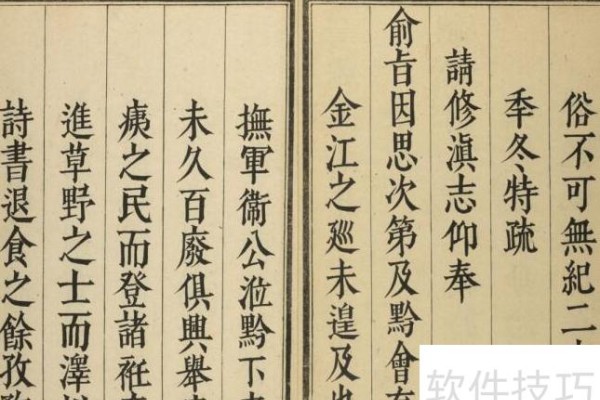 俗不可無紀二
季冬特疏
請修滇志仰奉
俞旨因思次第及黔會
金江之廵未遑及也
撫軍衞公涖黔下
未久百廢俱興舉
痍之民而登諸袵
進草野之士而澤
詩書退食之餘孜
软件技巧